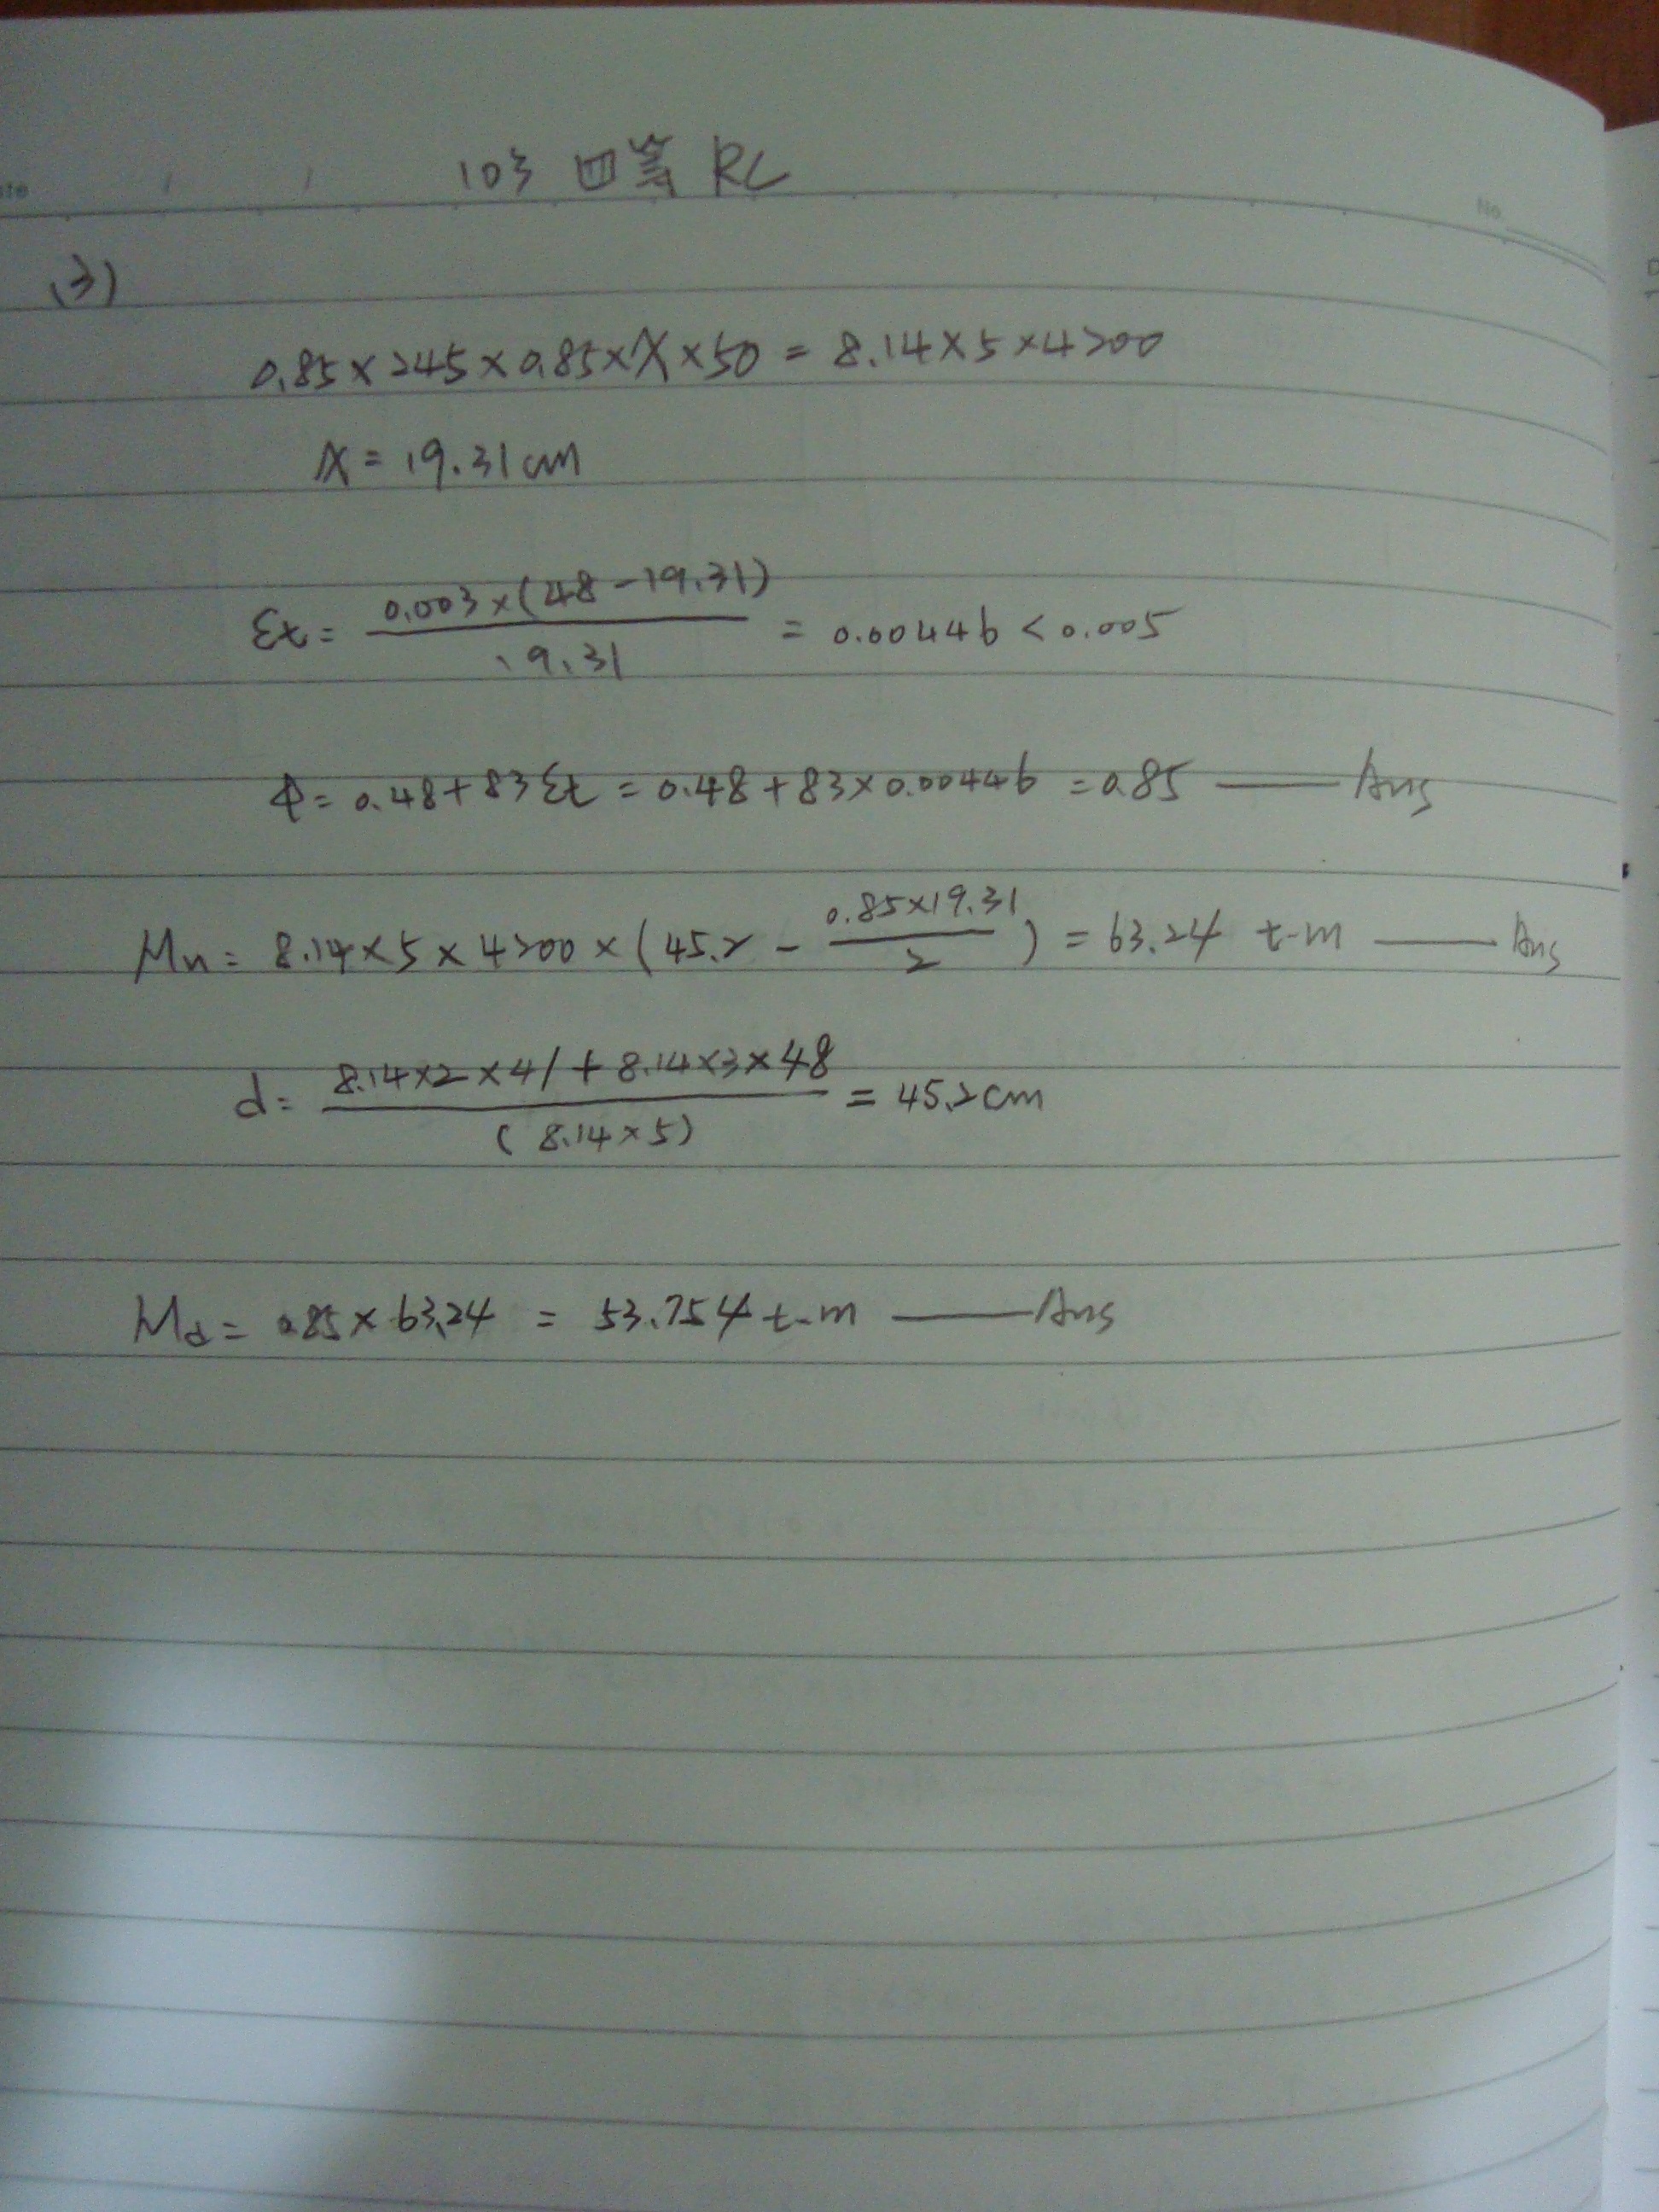 103 四等 RC
No.
(3)
0.85×245×0.85×X×50 = 8.14×5×4200
X = 19.31cm
εt = 0.003×(48-19.31) / 19.31 = 0.00446 < 0.005
φ = 0.48+83εt = 0.48+83×0.00446 = 0.85 —— Ans
Mn = 8.14×5×4200×(45.2 - 0.85×19.31 / 2) = 63.24 t-m —— Ans
d = 8.14×2×41+8.14×3×48 / (8.14×5) = 45.2cm
Md = 0.85×63.24 = 53.754 t-m —— Ans